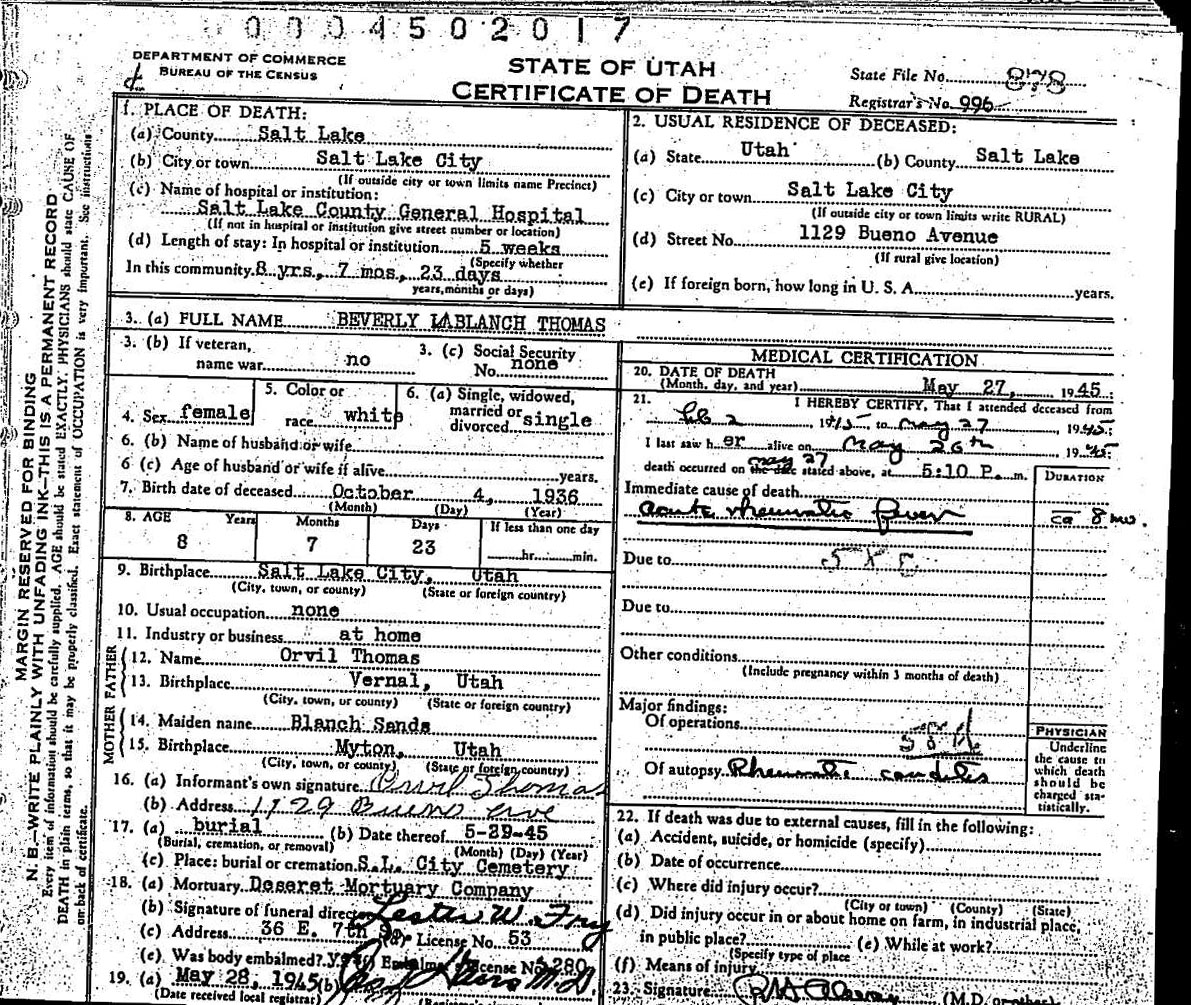 0004502017
DEPARTMENT OF COMMERCE
BUREAU OF THE CENSUS
STATE OF UTAH
CERTIFICATE OF DEATH
State File No. 878
Registrar's No. 996
1. PLACE OF DEATH:
(a) County Salt Lake
(b) City or town Salt Lake City
(If outside city or town limits name Precinct)
(c) Name of hospital or institution:
Salt Lake County General Hospital
(If not in hospital or institution give street number or location)
(d) Length of stay: In hospital or institution 5 weeks
(Specify whether
In this community 8 yrs., 7 mos., 23 days
years, months or days)
2. USUAL RESIDENCE OF DECEASED:
(a) State Utah (b) County Salt Lake
(c) City or town Salt Lake City
(If outside city or town limits write RURAL)
(d) Street No. 1129 Bueno Avenue
(If rural give location)
(e) If foreign born, how long in U. S. A. years.
3. (a) FULL NAME BEVERLY LABLANCH THOMAS
3. (b) If veteran,
name war no
3. (c) Social Security
No. none
4. Sex female
5. Color or
race white
6. (a) Single, widowed,
married or
divorced single
6. (b) Name of husband or wife
6 (c) Age of husband or wife if alive years.
7. Birth date of deceased October 4, 1936
(Month) (Day) (Year)
8. AGE Years Months Days If less than one day
8 7 23 hr. min.
9. Birthplace Salt Lake City, Utah
(City, town, or county) (State or foreign country)
10. Usual occupation none
11. Industry or business at home
FATHER
12. Name Orvil Thomas
13. Birthplace Vernal, Utah
(City, town, or county) (State or foreign country)
MOTHER
14. Maiden name Blanch Sands
15. Birthplace Myton, Utah
(City, town, or county) (State or foreign country)
16. (a) Informant's own signature Orvil Thomas
(b) Address 1129 Bueno Ave
17. (a) burial (b) Date thereof 5-29-45
(Burial, cremation, or removal) (Month) (Day) (Year)
(c) Place: burial or cremation S.L. City Cemetery
18. (a) Mortuary Deseret Mortuary Company
(b) Signature of funeral director Lester W. Fry
(c) Address 36 E. 7th So. (d) License No. 53
(e) Was body embalmed? Yes (f) Embalmer's License No. 280
19. (a) May 28, 1945 (b) M.D.
(Date received local registrar)
MEDICAL CERTIFICATION
20. DATE OF DEATH
(Month, day, and year) May 27, 1945
21. I HEREBY CERTIFY, That I attended deceased from
Feb 2 1945, to May 27, 1945;
I last saw her alive on May 26th, 1945;
May 27
death occurred on the date stated above, at 5:10 P. m.
DURATION
Immediate cause of death
acute rheumatic fever ca 8 mo.
Due to
Due to
Other conditions
(Include pregnancy within 3 months of death)
Major findings:
Of operations
Of autopsy Rheumatic carditis
PHYSICIAN
Underline
the cause to
which death
should be
charged sta-
tistically.
22. If death was due to external causes, fill in the following:
(a) Accident, suicide, or homicide (specify)
(b) Date of occurrence
(c) Where did injury occur?
(City or town) (County) (State)
(d) Did injury occur in or about home on farm, in industrial place,
in public place? (e) While at work?
(Specify type of place
(f) Means of injury
23. Signature (M.D. or other)
MARGIN RESERVED FOR BINDING
N. B.—WRITE PLAINLY WITH UNFADING INK—THIS IS A PERMANENT RECORD
Every item of information should be carefully supplied. AGE should be stated EXACTLY. PHYSICIANS should state CAUSE OF
DEATH in plain terms, so that it may be properly classified. Exact statement of OCCUPATION is very important. See instructions
on back of certificate.